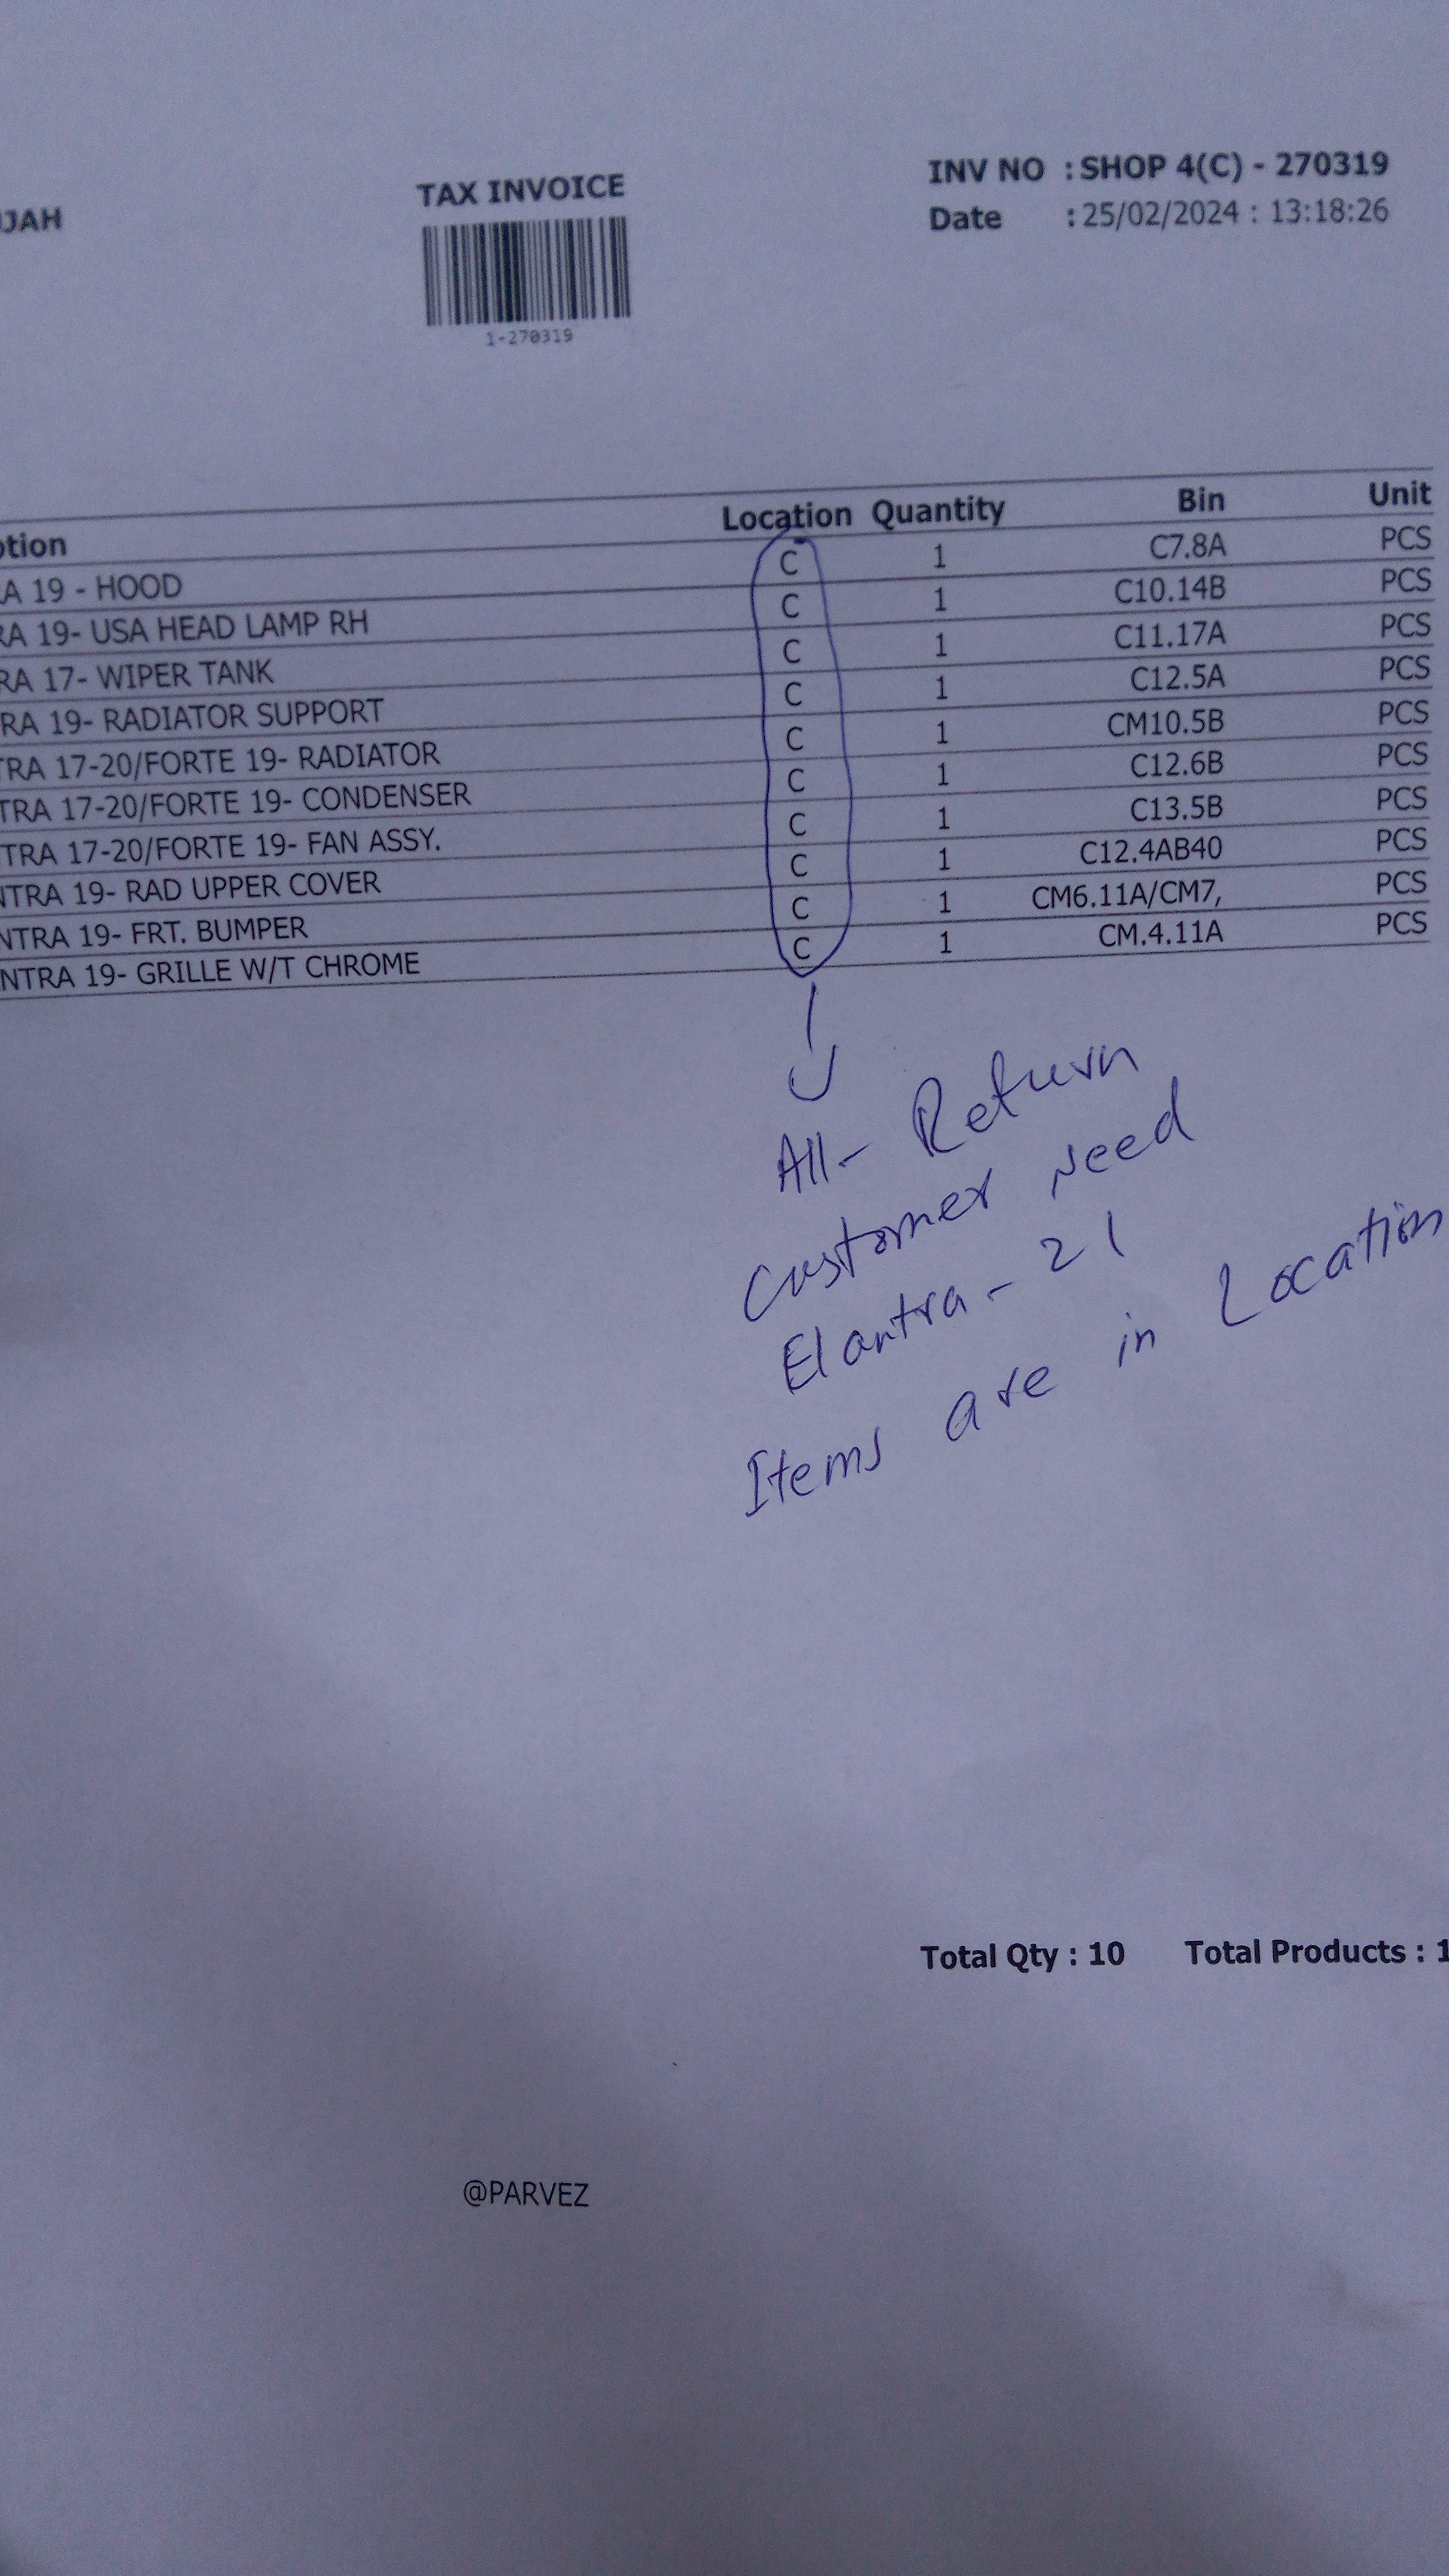 TAX INVOICE
INV NO : SHOP 4(C) - 270319
JAH
Date : 25/02/2024 : 13:18:26
1-270319
tion Location Quantity Bin Unit
A 19 - HOOD C 1 C7.8A PCS
RA 19- USA HEAD LAMP RH C 1 C10.14B PCS
RA 17- WIPER TANK C 1 C11.17A PCS
RA 19- RADIATOR SUPPORT C 1 C12.5A PCS
TRA 17-20/FORTE 19- RADIATOR C 1 CM10.5B PCS
TRA 17-20/FORTE 19- CONDENSER C 1 C12.6B PCS
TRA 17-20/FORTE 19- FAN ASSY. C 1 C13.5B PCS
NTRA 19- RAD UPPER COVER C 1 C12.4AB40 PCS
NTRA 19- FRT. BUMPER C 1 CM6.11A/CM7, PCS
NTRA 19- GRILLE W/T CHROME C 1 CM.4.11A PCS
All- Return
Customer Need
Elantra - 21
Items are in Location
Total Qty : 10 Total Products : 1
@PARVEZ